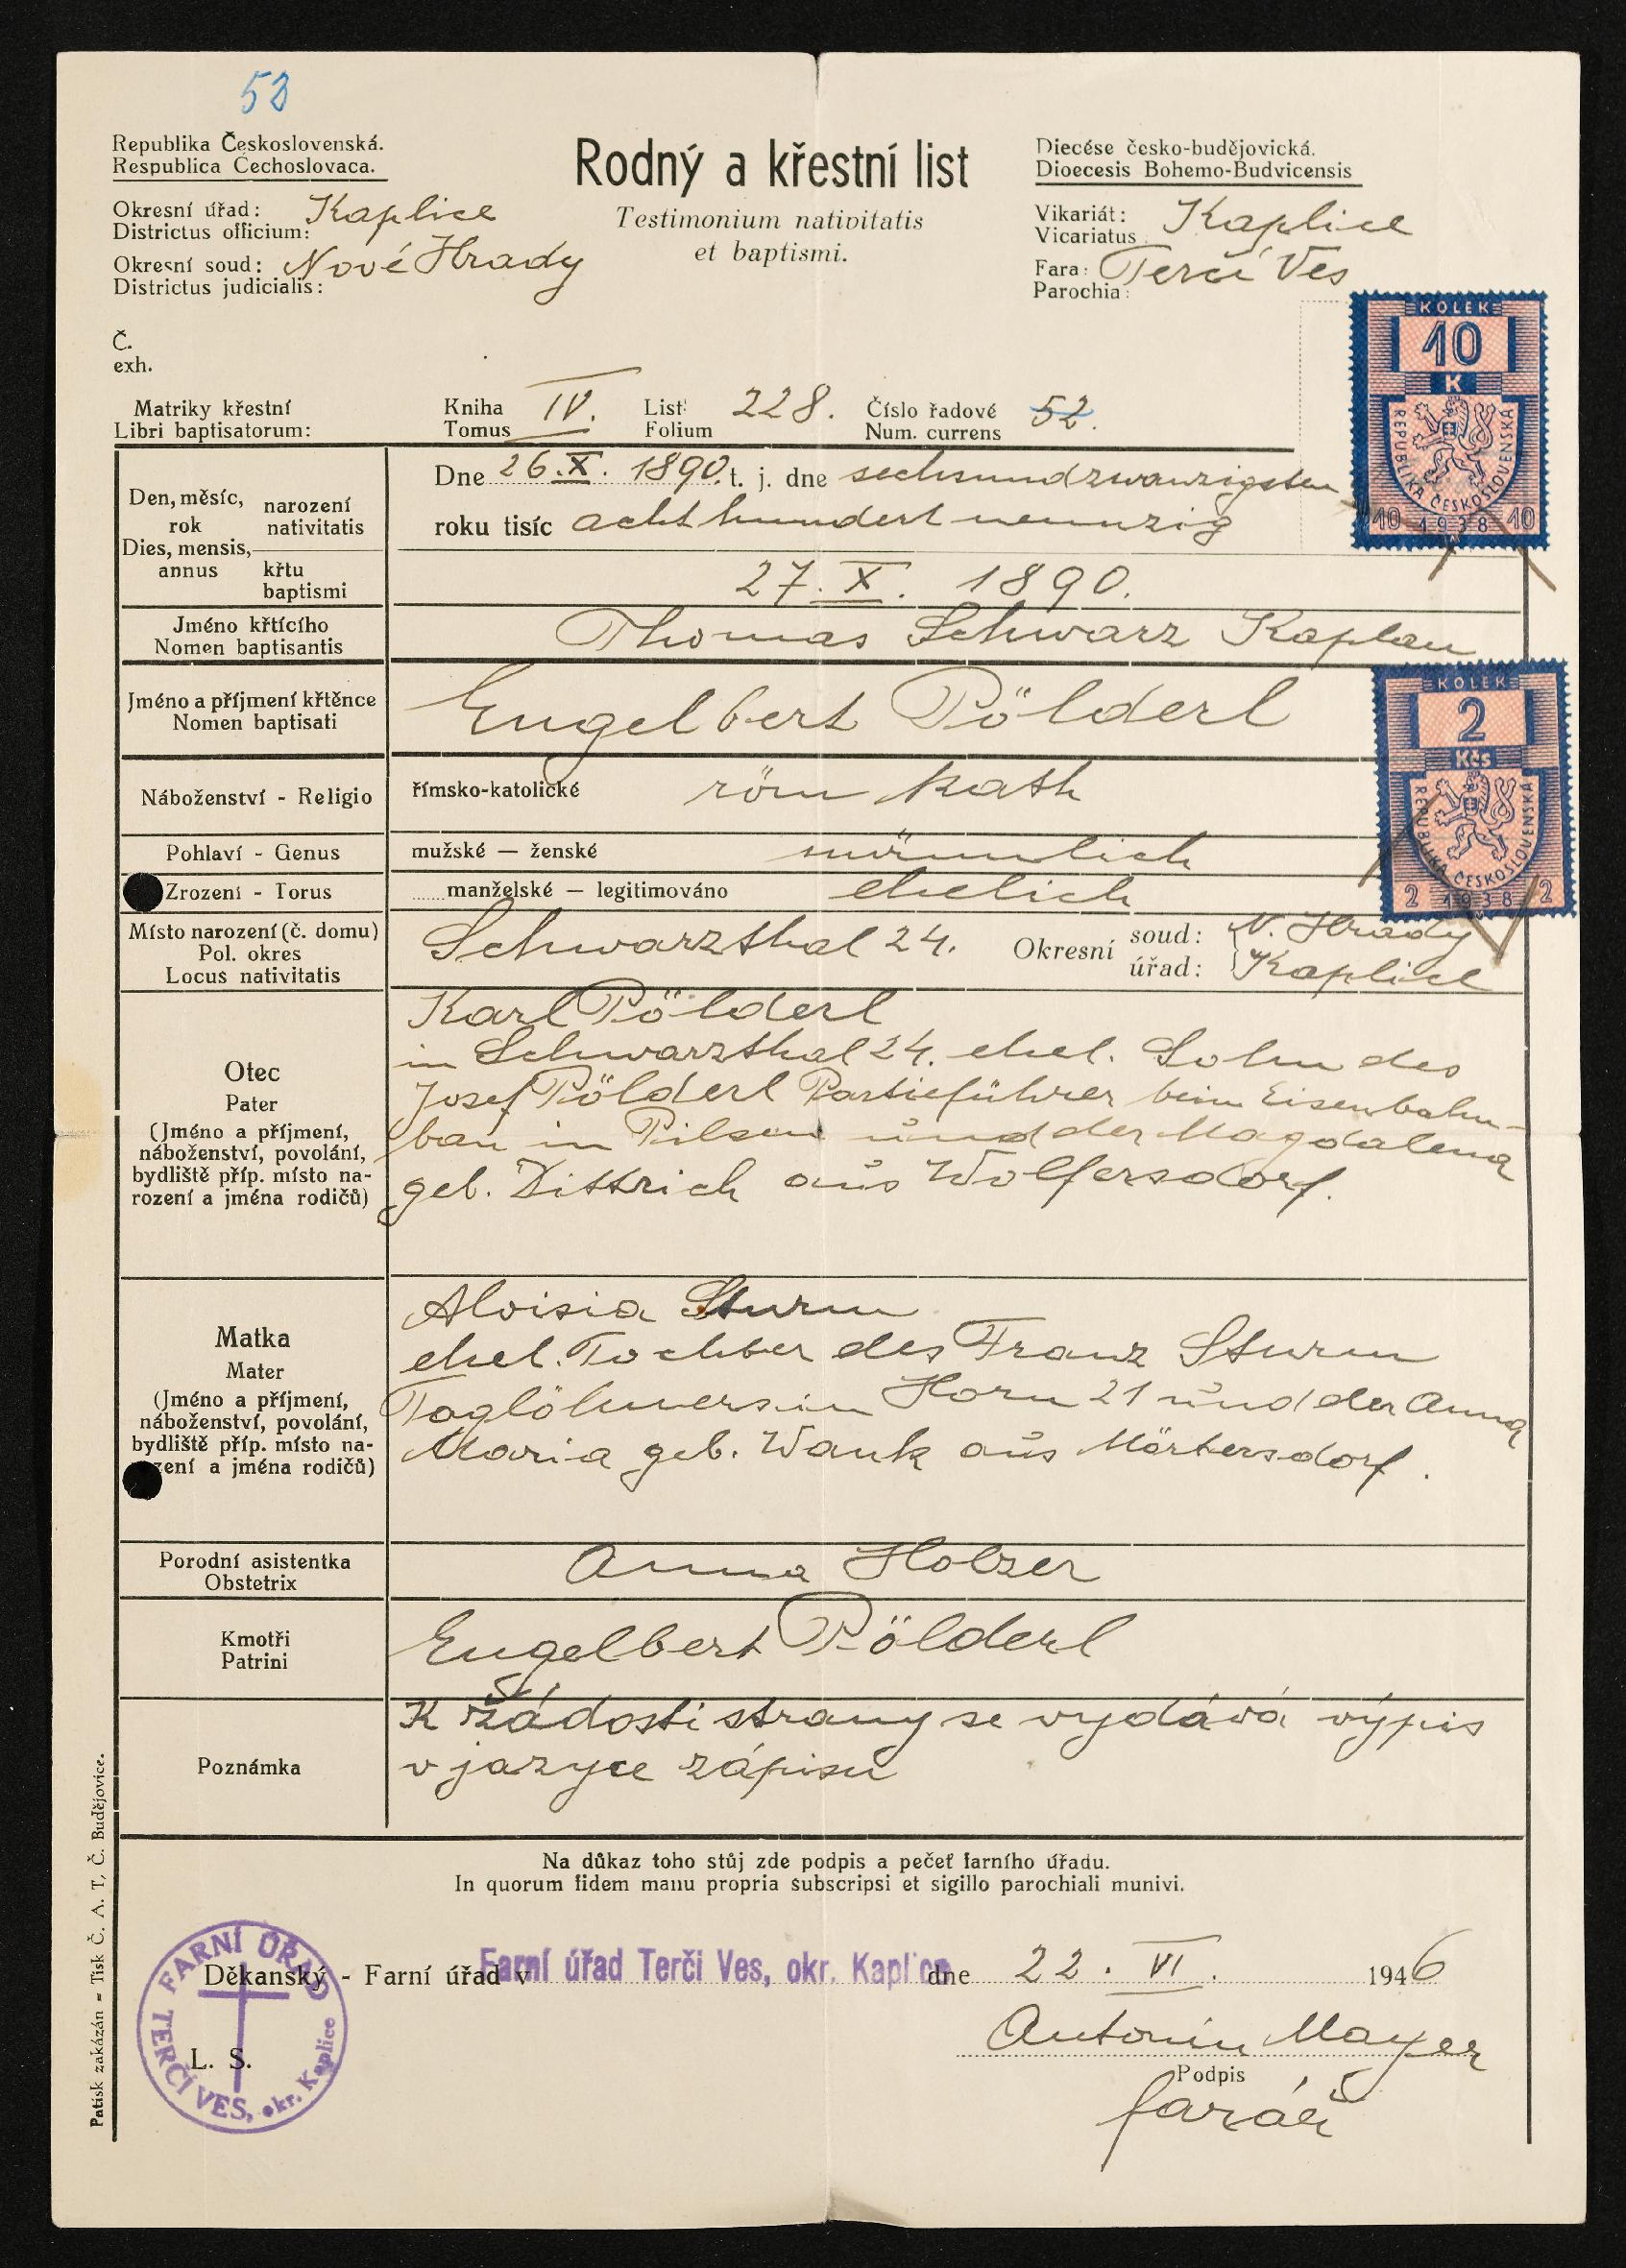 53
Republika Československá.
Respublica Čechoslovaca.
Okresní úřad: Kaplice
Districtus officium:
Okresní soud: Nové Hrady
Districtus judicialis:
Rodný a křestní list
Testimonium nativitatis
et baptismi.
Diecése česko-budějovická.
Dioecesis Bohemo-Budvicensis
Vikariát: Kaplice
Vicariatus
Fara: Terčí Ves
Parochia:
KOLEK
10
K
REPUBLIKA ČESKOSLOVENSKÁ
10 1938 10
Č.
exh.
Matriky křestní
Libri baptisatorum:
Kniha IV.
Tomus
List 228.
Folium
Číslo řadové 52.
Num. currens
Den, měsíc,
rok
Dies, mensis,
annus
narození
nativitatis
křtu
baptismi
Dne 26.X. 1890. t. j. dne sechsundzwanzigsten
roku tisíc achthundertneunzig
27. X. 1890.
Jméno křtícího
Nomen baptisantis
Thomas Schwarz Kaplan
Jméno a příjmení křtěnce
Nomen baptisati
Engelbert Pölderl
KOLEK
2
Kčs
REPUBLIKA ČESKOSLOVENSKÁ
2 1938 2
Náboženství - Religio
římsko-katolické röm kath
Pohlaví - Genus
mužské — ženské männlich
Zrození - Torus
manželské — legitimováno ehelich
Místo narození (č. domu)
Pol. okres
Locus nativitatis
Schwarzthal 24. Okresní soud: N. Hrady
úřad: Kaplice
Otec
Pater
(Jméno a příjmení,
náboženství, povolání,
bydliště příp. místo na-
rození a jména rodičů)
Karl Pölderl
in Schwarzthal 24. ehel. Sohn des
Josef Pölderl Partieführer beim Eisenbahn-
bau in Pilsen und der Magdalena
geb. Dittrich aus Wolfersdorf.
Matka
Mater
(Jméno a příjmení,
náboženství, povolání,
bydliště příp. místo na-
zení a jména rodičů)
Aloisia Sturm
ehel. Tochter des Franz Sturm
Taglöhners in Horn 21 und der Anna
Maria geb. Wank aus Mörtersdorf.
Porodní asistentka
Obstetrix
Anna Holzer
Kmotři
Patrini
Engelbert Pölderl
Poznámka
K žádosti strany se vydává výpis
v jazyce zápisu
Na důkaz toho stůj zde podpis a pečeť farního úřadu.
In quorum fidem manu propria subscripsi et sigillo parochiali munivi.
Děkanský - Farní úřad v Farní úřad Terčí Ves, okr. Kaplice dne 22. VI. 1946
FARNÍ ÚŘAD
TERČÍ VES, okr. Kaplice
L. S.
Antonín Mayer
Podpis
farář
Patisk zakázán - Tisk Č. A. T., Č. Budějovice.